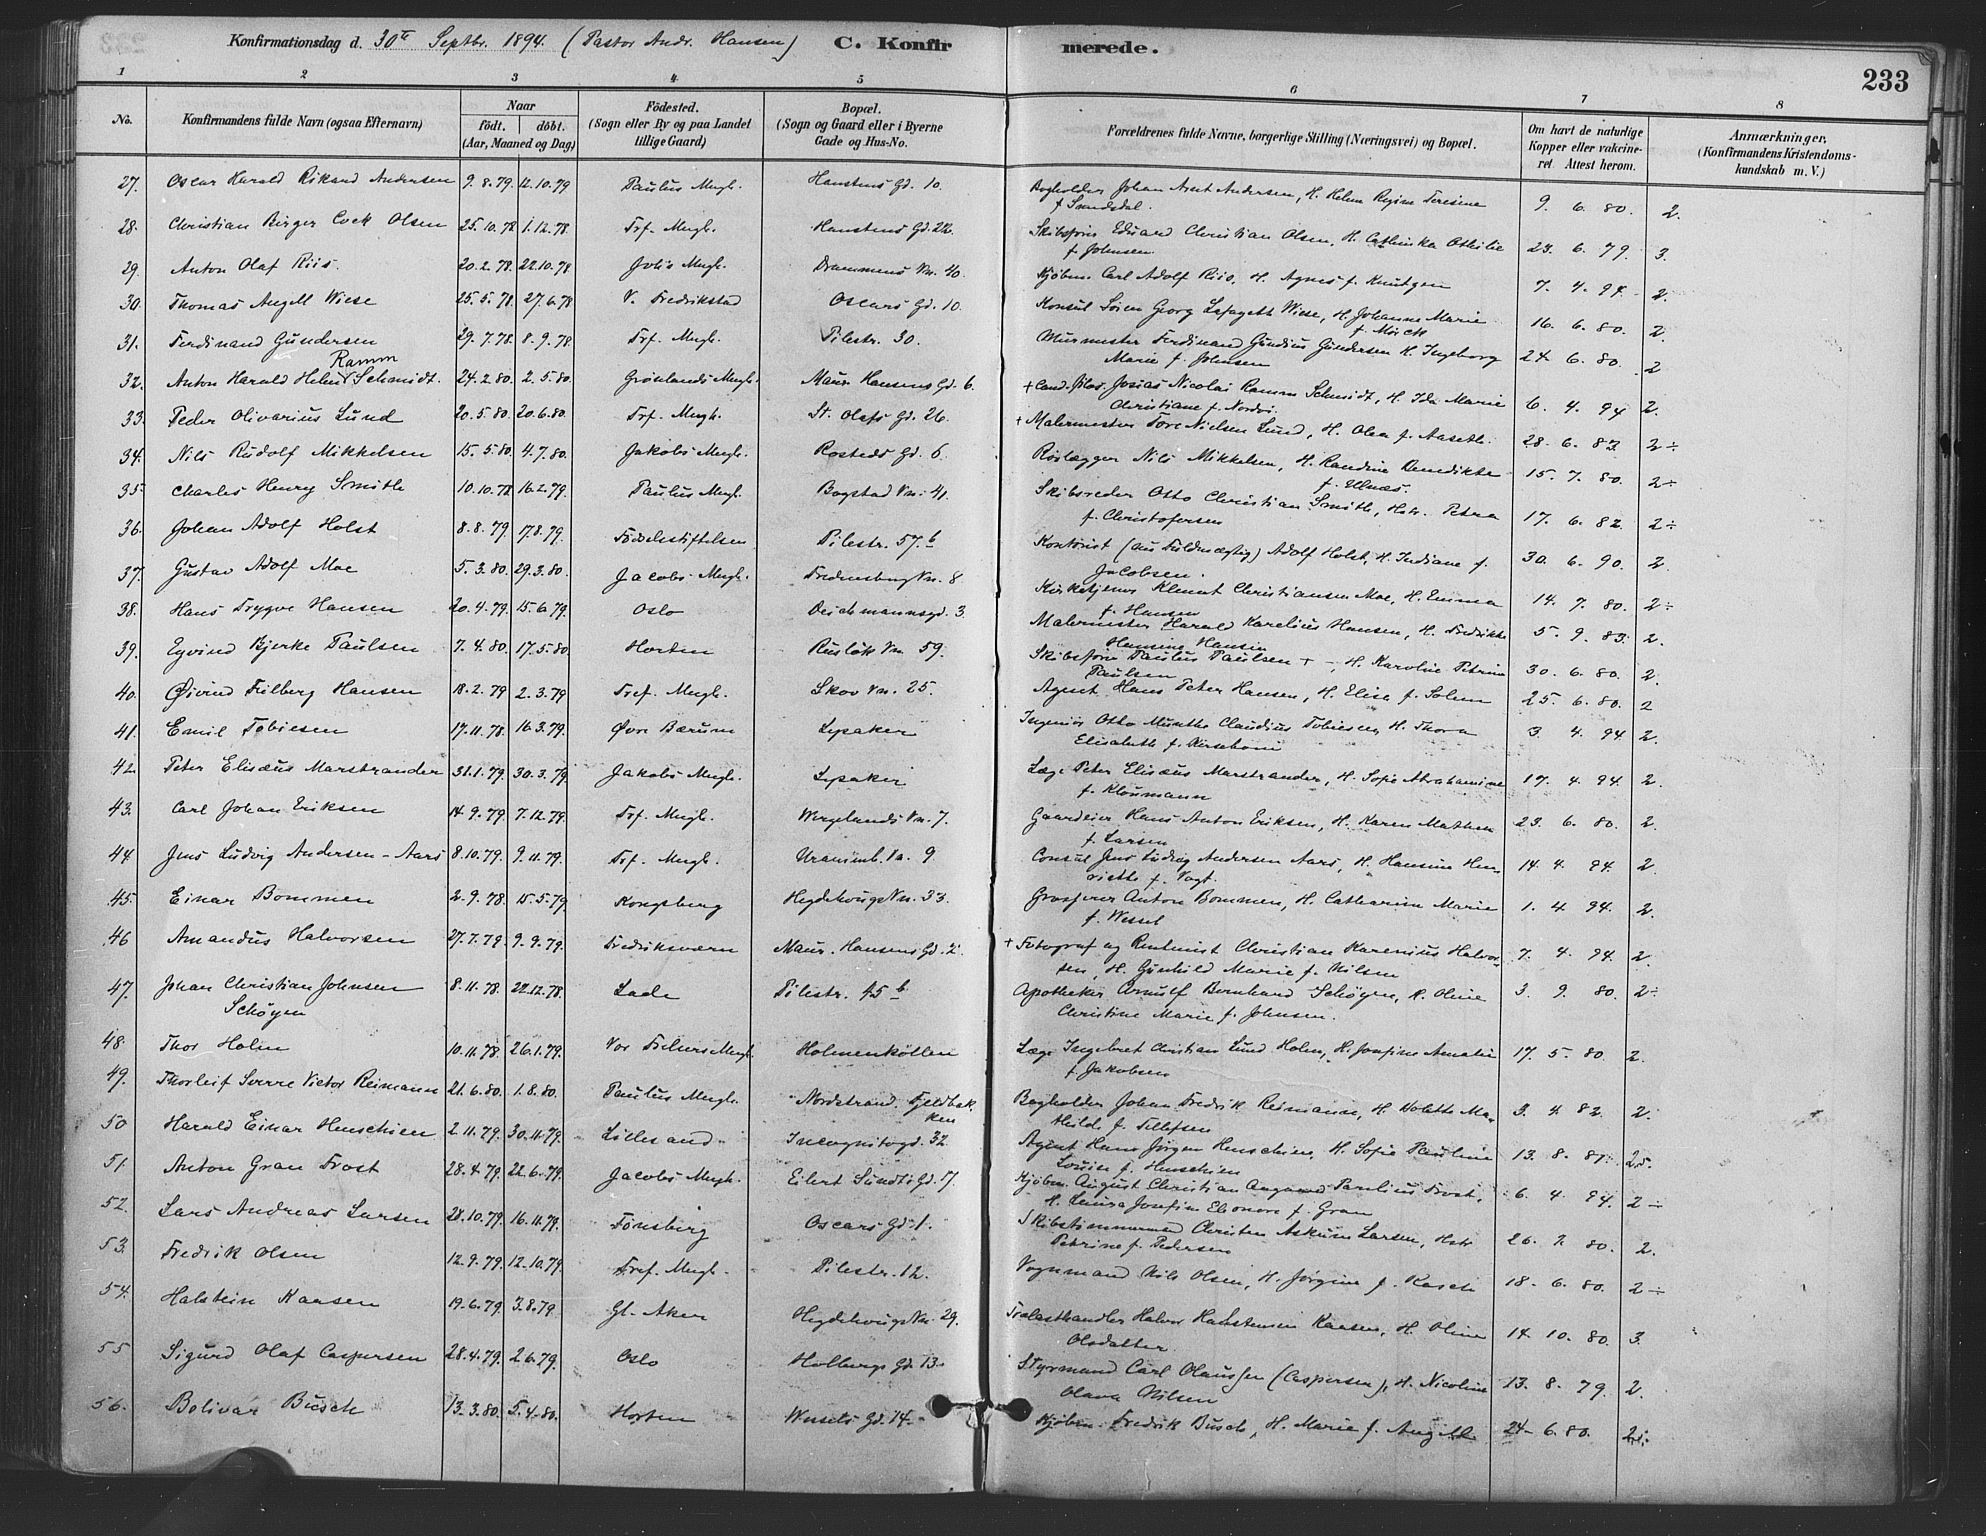 Konfirmationsdag d. 30te Septbr. 1894. (Pastor Andr. Hansen) C. Konfirmerede.
233
1 2 3 4 5 6 7 8
No.
Konfirmandens fulde Navn (ogsaa Efternavn)
Naar
födt. döbt.
(Aar, Maaned og Dag)
Födested.
(Sogn eller By og paa Landet
tillige Gaard)
Bopæl.
(Sogn og Gaard eller i Byerne
Gade og Hus-No.
Forældrenes fulde Navne, borgerlige Stilling (Næringsvei) og Bopæl.
Om havt de naturlige
Kopper eller vakcine-
ret. Attest herom.
Anmærkninger,
(Konfirmandens Kristendoms-
kundskab m. V.)
27. Oscar Harald Rikard Andersen 9.8.79 12.10.79 Paulus Mngh. Hanstens Gd. 10. Bogholder Johan Arnt Andersen, H. Helene Regine Teresine
f. Sundsdal. 9. 6. 80. 2.
28. Christian Birger Cock Olsen 25.10.78 1.12.78. Trf. Mngh. Hanstens Gd. 22. Skibsfører Eduard Christian Olsen, H. Cathinka Othilie
f. Johnsen 23. 6. 79. 3.
29. Anton Olaf Riis. 20.2.78. 22.10.78 Joh's Mngh. Drammens Vn. 40. Kjøbm. Carl Adolf Riis, H. Agnes f. Knutzen 7. 4. 94. 2.
30. Thomas Angell Wiese 25.5.78. 27.6.78 V. Fredrikstad Oscars Gd. 10. Konsul Sören Georg Lafayett Wiese, H. Johanne Marie
f. Mörck 16. 6. 80. 2.
31. Ferdinand Gundersen 29.7.78. 8.9.78 Trf. Mngh. Pilestr. 30. Murmester Ferdinand Gundius Gundersen H. Ingeborg
Marie f. Johnsen 24. 6. 80. 2
Ramm
32. Anton Harald Helius Schmidt. 24.2.80. 2.5.80. Grønlands Mngh. Maur. Hansens Gd. 6. + Cand. philos. Josias Nicolai Ramm Schmidt, H. Ida Marie
Christiane f. Nordvi 6. 4. 94 2.
33. Peder Olivarius Lund 20.5.80. 20.6.80. Trf. Mngh. St. Olafs Gd. 26. + Malermester Tore Nielsen Lund, H. Olea f. Aaseth. 28. 6. 83. 2÷
34. Nils Rudolf Mikkelsen 15.5.80 4.7.80. Jakobs Mngh. Rosteds Gd. 6. Rörlægger Nils Mikkelsen, H. Randine Benedikte
f. Ulnæs. 15. 7. 80. 2÷
35. Charles Henry Smith 10.10.78 16.2.79. Paulus Mngh. Bogstad Vn. 41. Skibsreder Otto Christian Smith, Hstr. Petra
f. Christofersen 17. 6. 82. 2÷
36. Johan Adolf Holst 8.8.79 17.8.79. Fødselsstiftelsen Pilestr. 57.b Kontorist (aus Fuldmægtig) Adolf Holst, H. Indiane f.
Jacobsen. 30. 6. 90. 2.
37. Gustav Adolf Moe 5.3.80. 29.3.80. Jacobs Mngh. Fredensborg Vn. 8 Kirketjener Klemet Christiansen Moe, H. Emma
f. Hansen 14. 7. 80. 2÷
38. Hans Trygve Hansen 20.4.79. 15.6.79. Oslo Deichmannsgd. 3. Malermester Harald Karelius Hansen, H. Fredrikke
Hansine Hansen 5. 9. 83. 2.
39. Eyvind Bjerke Paulsen 7.4.80. 17.5.80 Horten Rusløk Vn. 59. Skibsfører Paulus Paulsen + , H. Karoline Petrine
Paulsen 30. 6. 80. 2.
40. Øivind Filberg Hansen 18.2.79 2.3.79 Tref. Mngh. Skov Vn. 25. Agent Hans Peter Hansen, H. Elise f. Solem 25. 6. 80. 2
41. Emil Tobiesen 17.11.78 16.3.79. Øvre Bærum Lysaker Ingeniør Otto Munthe Claudius Tobiesen, H. Thora
Elisabeth f. Kirsebom 3. 4. 94 2.
42. Peter Elisæus Marstrander 31.1.79. 30.3.79. Jakobs Mngh. Lysaker Læge Peter Elisæus Marstrander, H. Sofie Abrahamine
f. Kloumann 17. 4. 94. 2.
43. Carl Johan Eriksen 14.9.79 7.12.79. Trf. Mngh. Wergelands Vn. 7. Gaardeier Hans Anton Eriksen, H. Karen Mathea
f. Larsen 23. 6. 80. 2.
44 Jens Ludvig Andersen-Aars 8.10.79. 9.11.79. Trf. Mngh. Uranienb. Vn. 9 Consul Jens Ludvig Andersen Aars, H. Hansine Hen-
riette f. Vogt. 14. 4. 94. 2
45. Einar Bommen 2.9.78. 15.5.79 Kongsberg Hegdehougs Vn. 33. Grosserer Anton Bommen, H. Catharina Marie
f. Wessel 1. 4 94. 2.
46 Amandus Halvorsen 27.7.79 9.9.79. Fredriksværn Maur. Hansens Gd. 2. + Fotograf og Rentenist Christian Karenius Halvor-
sen, H. Gunhild Marie f. Nilsen 7. 4. 94. 2.
47. Johan Christian Johnsen
Schøyen 8.11.78. 22.12.78. Lade Pilestr. 45 b Apotheker Arnulf Bernhard Schøyen, H. Oline
Christine Marie f. Johnsen. 3. 9. 80. 2÷
48. Thor Holm 10.11.78. 26.1.79. Vor Frelsers Mngh. Holmenkollen Læge Ingebret Christian Lund Holm, H. Josefine Amalie
f. Jakobsen 17. 5. 80. 2.
49. Thorleif Sverre Victor Reimann 21.6.80. 1.8.80. Paulus Mngh. Nordstrand. Fjeldbak-
ken Bogholder Johan Fredrik Reimann, H. Nolette Ma-
thilde f. Tellefsen 3. 4. 82. 2.
50 Harald Einar Henschien 2.11.79. 30.11.79. Lillesand Incognitogd. 32. Agent Hans Jørgen Henschien, H. Sofie Pauline
Louise f. Henschien 13. 8. 81. 2,5.
51. Anton Gran Frost 28.4.79. 22.6.79. Jacobs Mngh. Eilert Sundts Gd. 17. Kjøbm. August Christian Aagaard Parelius Frost,
H. Laura Josefine Eleonore f. Gran 6. 4. 94. 2÷
52. Lars Andreas Larsen 21.10.79. 16.11.79. Tønsberg Oscars Gd. 1. Skibstimmermand Christen Askum Larsen, Hstr.
Petrine f. Pedersen 26. 7. 80. 2.
53. Fredrik Olsen 12.9.79. 12.10.79. Tref. Mngh. Pilestr. 12. Vognmand Nils Olsen, H. Jørgine f. Rasch 18. 6. 80. 2÷
54. Halstein Kaasen 19.6.79. 3.8.79. Gl. Aker Hegdehougs Vn. 29. Trælasthandler Halvor Halstensen Kaasen, H. Oline
Olsdatter 14. 10. 80. 3.
55 Sigurd Olaf Caspersen 28.4.79. 2.6.79. Oslo Holbergs Gd. 13. Styrmand Carl Olaussen (Caspersen), H. Nicoline
Olava Nilsen 13. 8. 79. 2.
56. Bolivar Busch 13.3.80. 5.4.80. Horten Wessels Gd. 14. Kjøbm. Fredrik Busch, H. Marie f. Angell 24. 6. 80. 2,5.